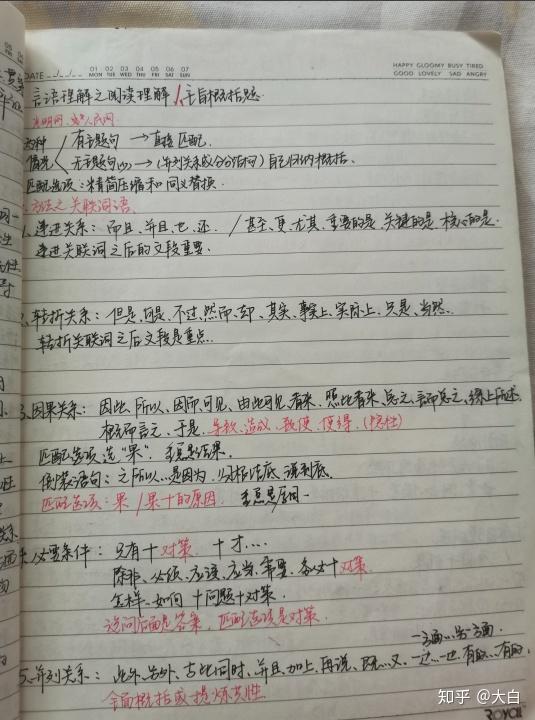 DATE
01 02 03 04 05 06 07
MON TUE WED THU FRI SAT SUN
HAPPY GLOOMY BUSY TIRED
GOOD LOVELY SAD ANGRY
言语理解之阅读理解 1.主旨概括题
光明网、人民网
两种 有主题句 → 直接匹配.
情况 无主题句 → (并列关系或分总结构) 自己归纳概括.
匹配选项:精简压缩和同义替换.
方法之关联词语
1.递进关系:而且、并且、也、还. / 甚至、更、尤其、重要的是、关键的是、核心的是.
递进关联词之后的文段重要.
2.转折关系:但是、可是、不过、然而、却、其实、事实上、实际上、只是、当然.
转折关联词之后文段是重点.
3.因果关系:因此、所以、因而、可见、由此可见、看来、照此看来、总之、言而总之、综上所述.
概而言之、于是、导致、造成、致使、使得.
匹配选项,选“果”. 重点是结果.
倒装语句:之所以…是因为、归根结底、说到底.
匹配选项:果 / 果+的原因. 重点是原因
4.必要条件:只有+对策 + 才….
除非、必须、应该、应当、需要、务必+对策
怎样、如何 + 问题 + 对策.
设问后面是答案,匹配选项是对策.
一方面…另一方面.
5.并列关系:此外、另外、与此同时、并且、加上、再说、既…又、一边…一边、有的…有的.
全面概括或提炼共性
知乎 @大白
ROYAL